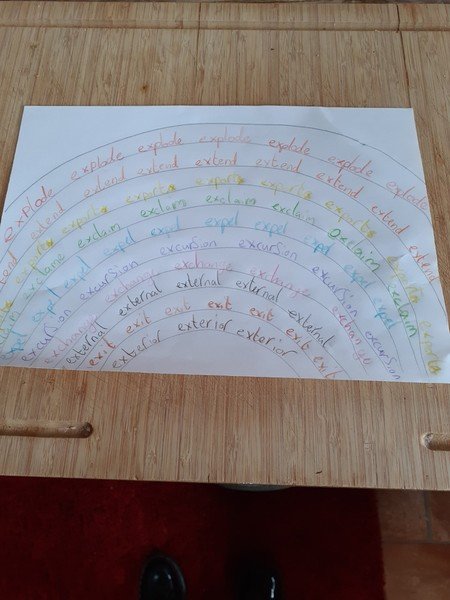 explode explode explode explode explode explode explode explode
tend extend extend extend extend extend extend extend extend
exports exports exports exports exports exports exports exports
claim exclaime exclaim exclaim exclaim exclaim exclaim exclaim exclaim
pel expel expel expel expel expel expel expel expel expel expel
excursion excursion excursion excursion excursion excursion
exchange exchange exchange exchange exchange
external external external external external
exit exit exit exit exit exit exit exit
exterior exterior exterior